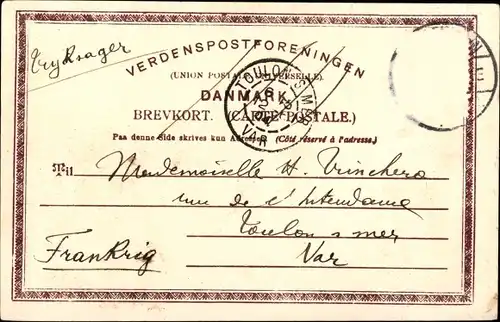 Tryksager
VERDENSPOSTFORENINGEN
(UNION POSTALE UNIVERSELLE)
DANMARK
BREVKORT. (CARTE POSTALE.)
Paa denne Side skrives kun Adressen (Côté réservé à l'adresse.)
TOULON S MER
VAR
Til Mademoiselle H. Vrinchero
rue de l'Intendance
Toulon s mer
Frankrig Var